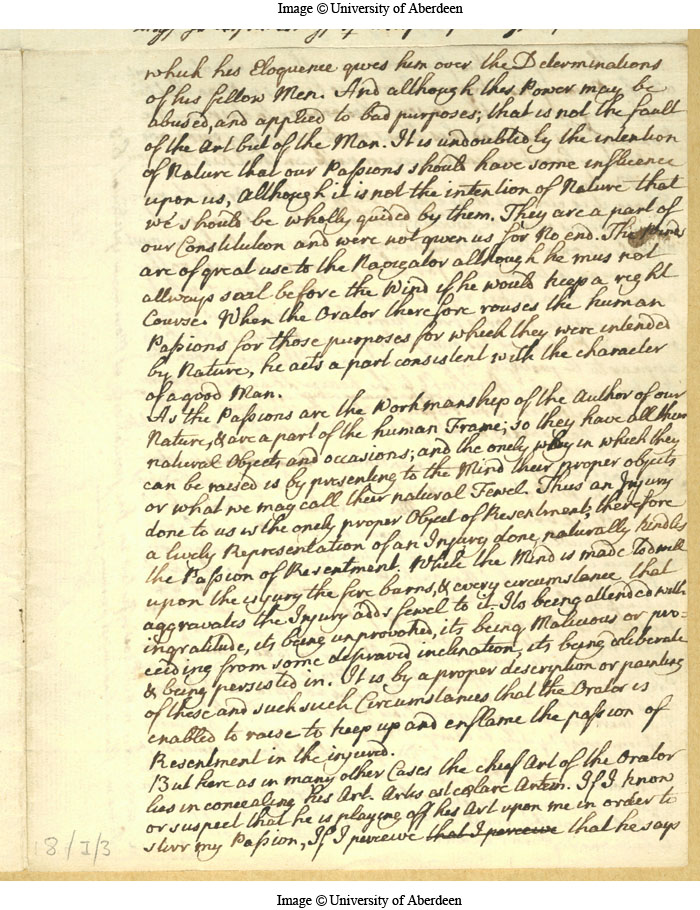 Image © University of Aberdeen
which his Eloquence gives him over the Determinations
of his fellow Men. And although this Power may be
abused, and applied to bad purposes; that is not the fault
of the Art but of the Man. It is undoubtedly the intention
of Nature that our Passions should have some influence
upon us, Although it is not the intention of Nature that
we should be wholly guided by them. They are a part of
our Constitution and were not given us for No end. The Winds
are of great use to the Navigator although he mus not
allways sail before the Wind if he would keep a right
Course. When the Orator therefore rouses the human
Passions for those purposes for which they were intended
by Nature, he acts a part consistent with the character
of a good Man.
As the Passions are the Workmanship of the Author of our
Nature, & are a part of the human Frame; so they have all their
natural Objects and occasions; and the onely way in which they
can be raised is by presenting to the Mind their proper objects
or what we may call their natural Fewel. Thus an Injury
done to us is the onely proper Object of Resentment; therefore
a lively Representation of an Injury done, naturally kindles
the Passion of Resentment. While the Mind is made to dwell
upon the injury the fire burns, & every circumstance that
aggravates the Injury adds fewel to it. Its being attended with
ingratitude, its being unprovoked, its being Malicious or pro=
ceeding from some depraved inclination, its being deliberate
& being persisted in. It is by a proper description or painting
of these and such such Circumstances that the Orator is
enabled to raise to keep up and enflame the passion of
Resentment in the injured.
But here as in many other Cases the chief Art of the Orator
lies in concealing his Art. Artis est celare Artem. If I know
or suspect that he is playing off his Art upon me in order to
stirr my Passion, If I perceive that I perceive that he says
8/I/3
Image © University of Aberdeen